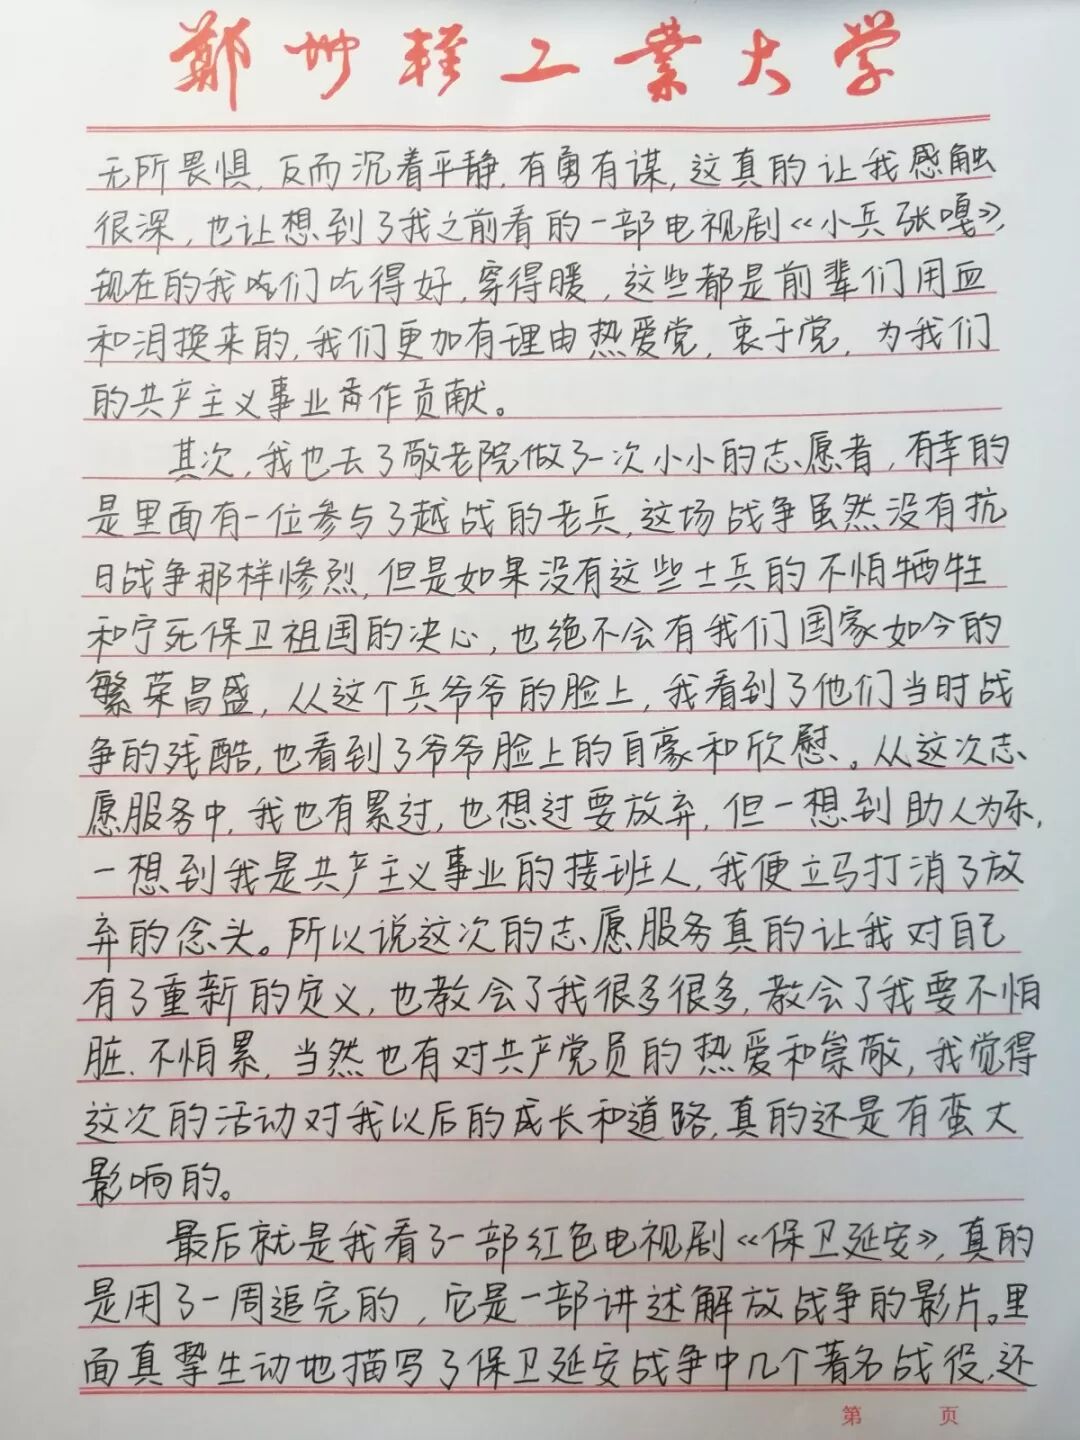 郑州轻工业大学
无所畏惧,反而沉着平静.有勇有谋,这真的让我感触
很深,也让想到了我之前看的一部电视剧《小兵张嘎》,
现在的我们吃得好,穿得暖,这些都是前辈们用血
和泪换来的,我们更加有理由热爱党,衷于党,为我们
的共产主义事业作贡献。
其次,我也去了敬老院做了一次小小的志愿者,有幸的
是里面有一位参与了越战的老兵,这场战争虽然没有抗
日战争那样惨烈,但是如果没有这些士兵的不怕牺牲
和宁死保卫祖国的决心,也绝不会有我们国家如今的
繁荣昌盛,从这个兵爷爷的脸上,我看到了他们当时战
争的残酷,也看到了爷爷脸上的自豪和欣慰。从这次志
愿服务中,我也有累过,也想过要放弃,但一想到助人为乐,
一想到我是共产主义事业的接班人,我便立马打消了放
弃的念头。所以说这次的志愿服务真的让我对自己
有了重新的定义,也教会了我很多很多,教会了我要不怕
脏.不怕累,当然也有对共产党员的热爱和崇敬,我觉得
这次的活动对我以后的成长和道路,真的还是有蛮大
影响的。
最后就是我看了一部红色电视剧《保卫延安》,真的
是用了一周追完的,它是一部讲述解放战争的影片。里
面真挚生动地描写了保卫延安战争中几个著名战役,还
第 页